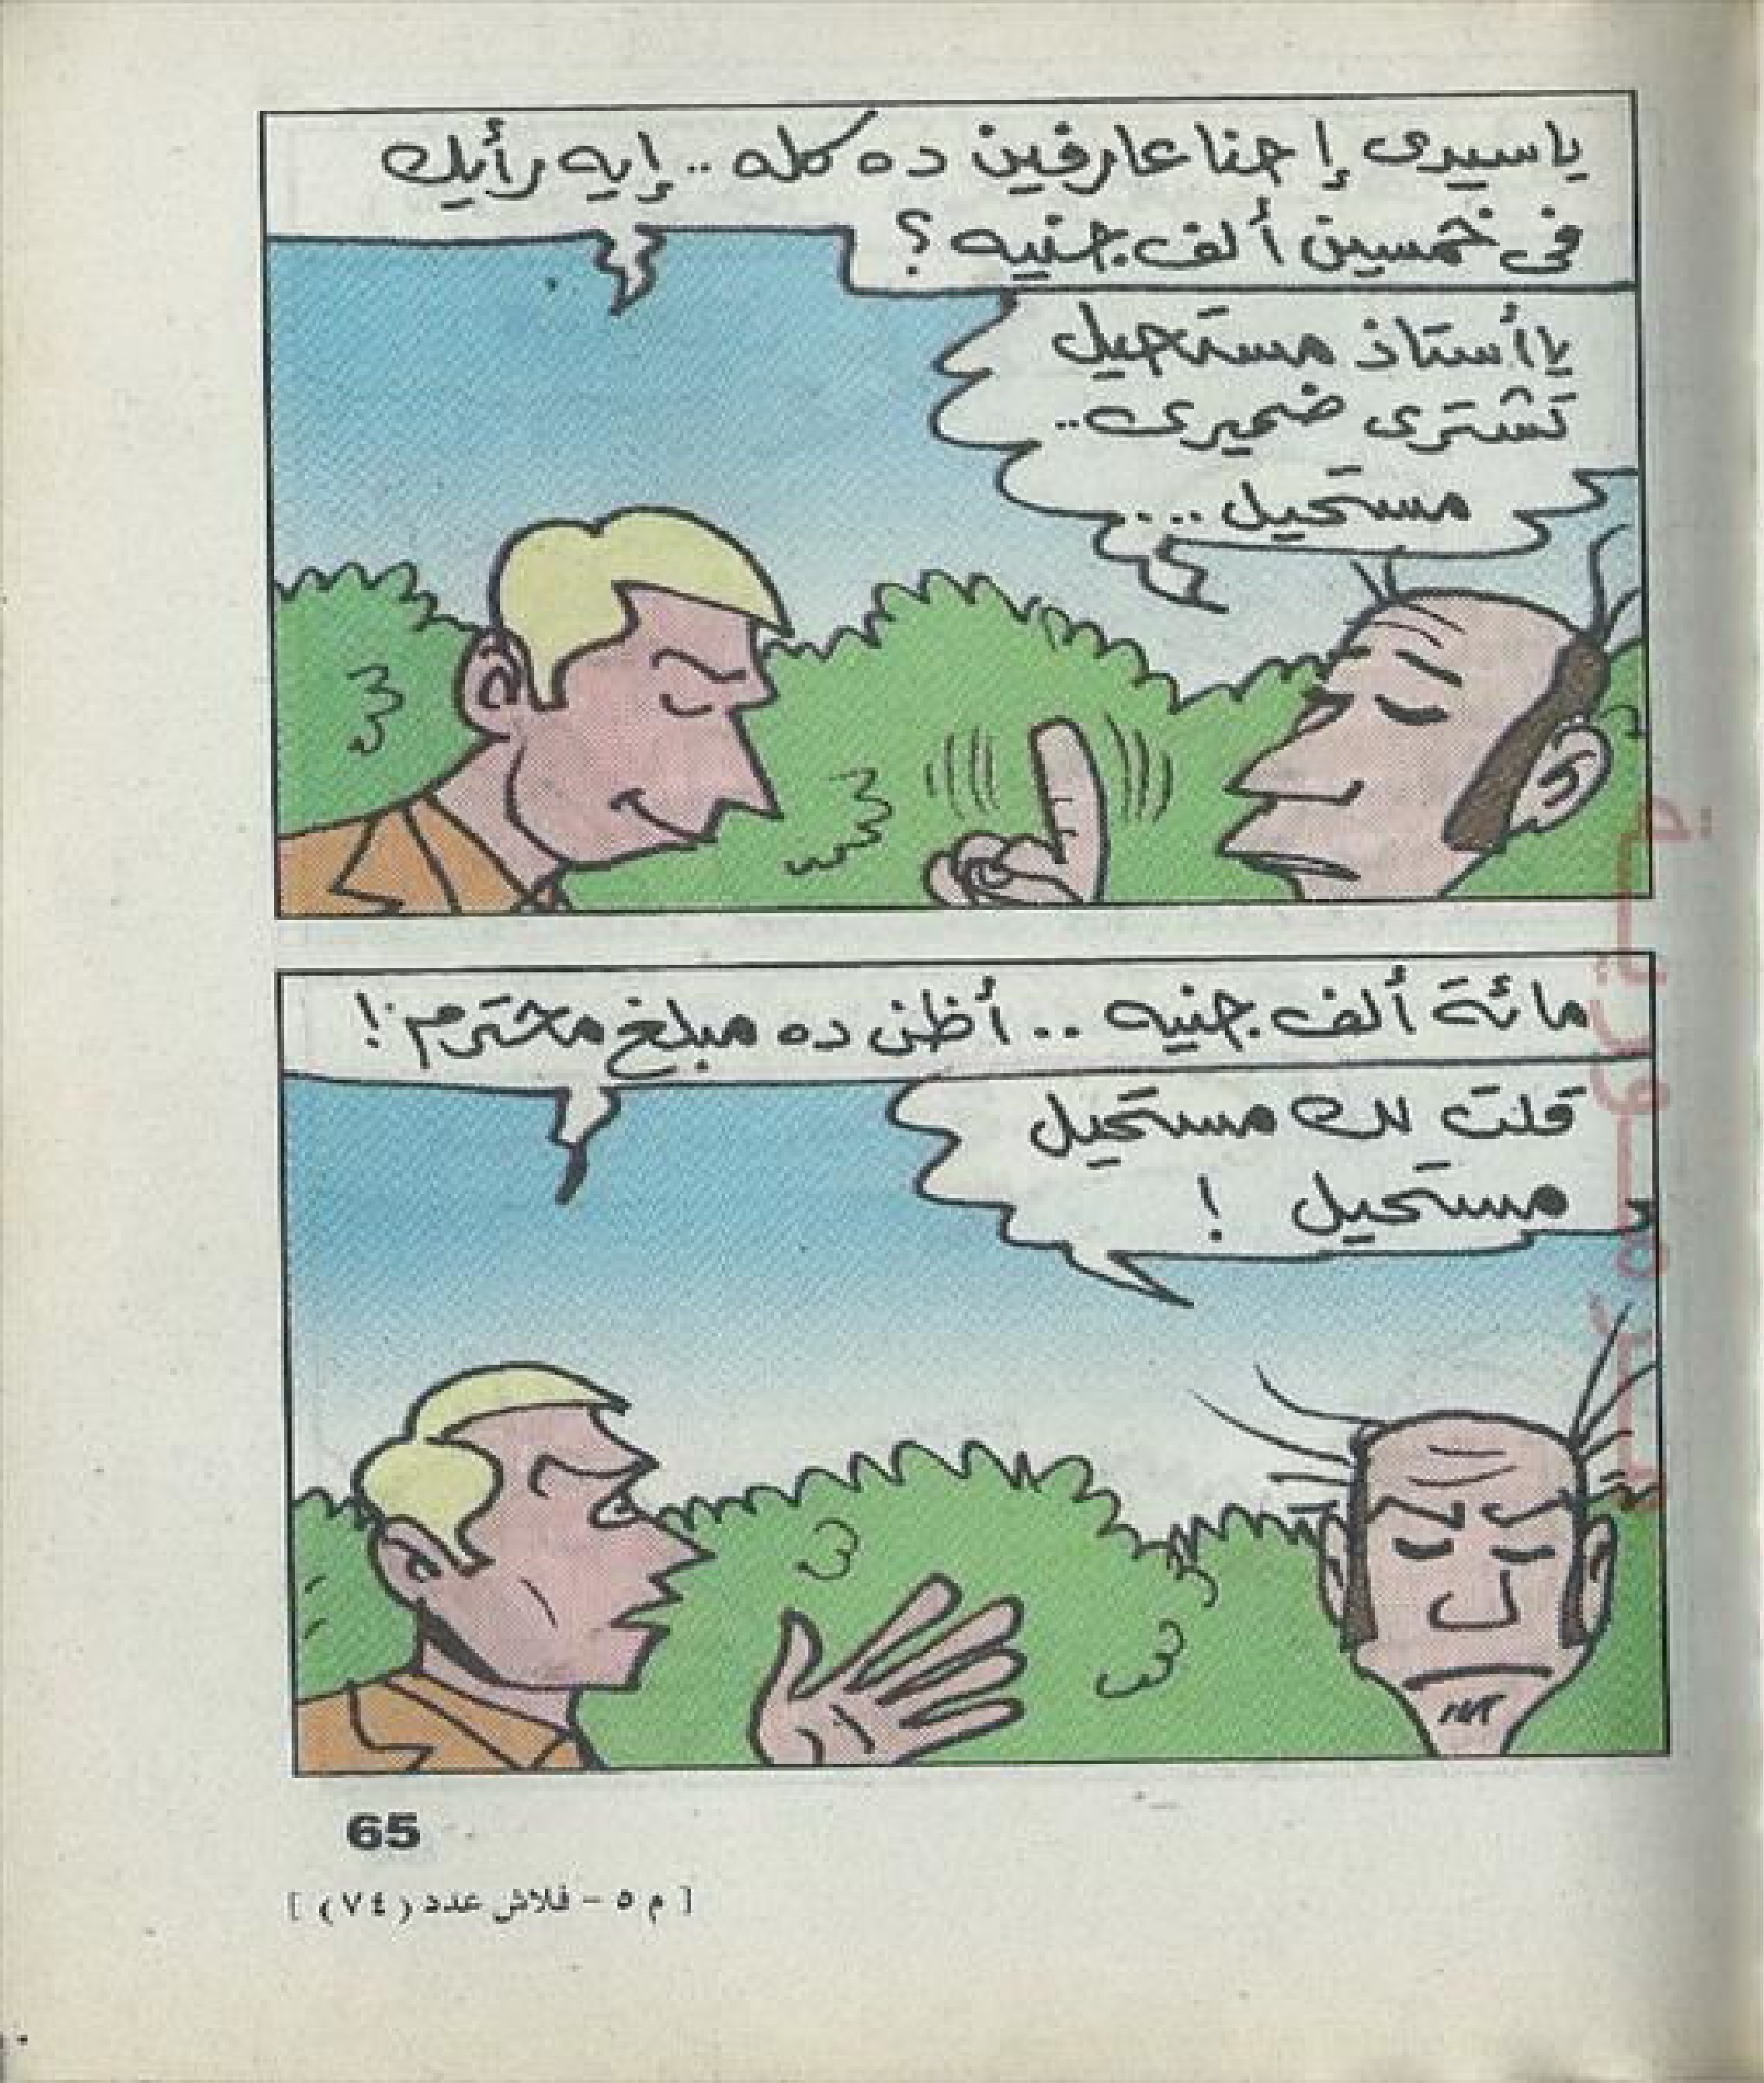 ياسيدى إحنا عارفين ده كله .. إيه رأيك
فى خمسين ألف جنيه ؟
ياأستاذ مستحيل
تشترى ضميرى ..
مستحيل ....
مائة ألف جنيه .. أظن ده مبلغ محترم !
قلت لك مستحيل
مستحيل !
65
[ م ٥ – فلاش عدد (٧٤) ]